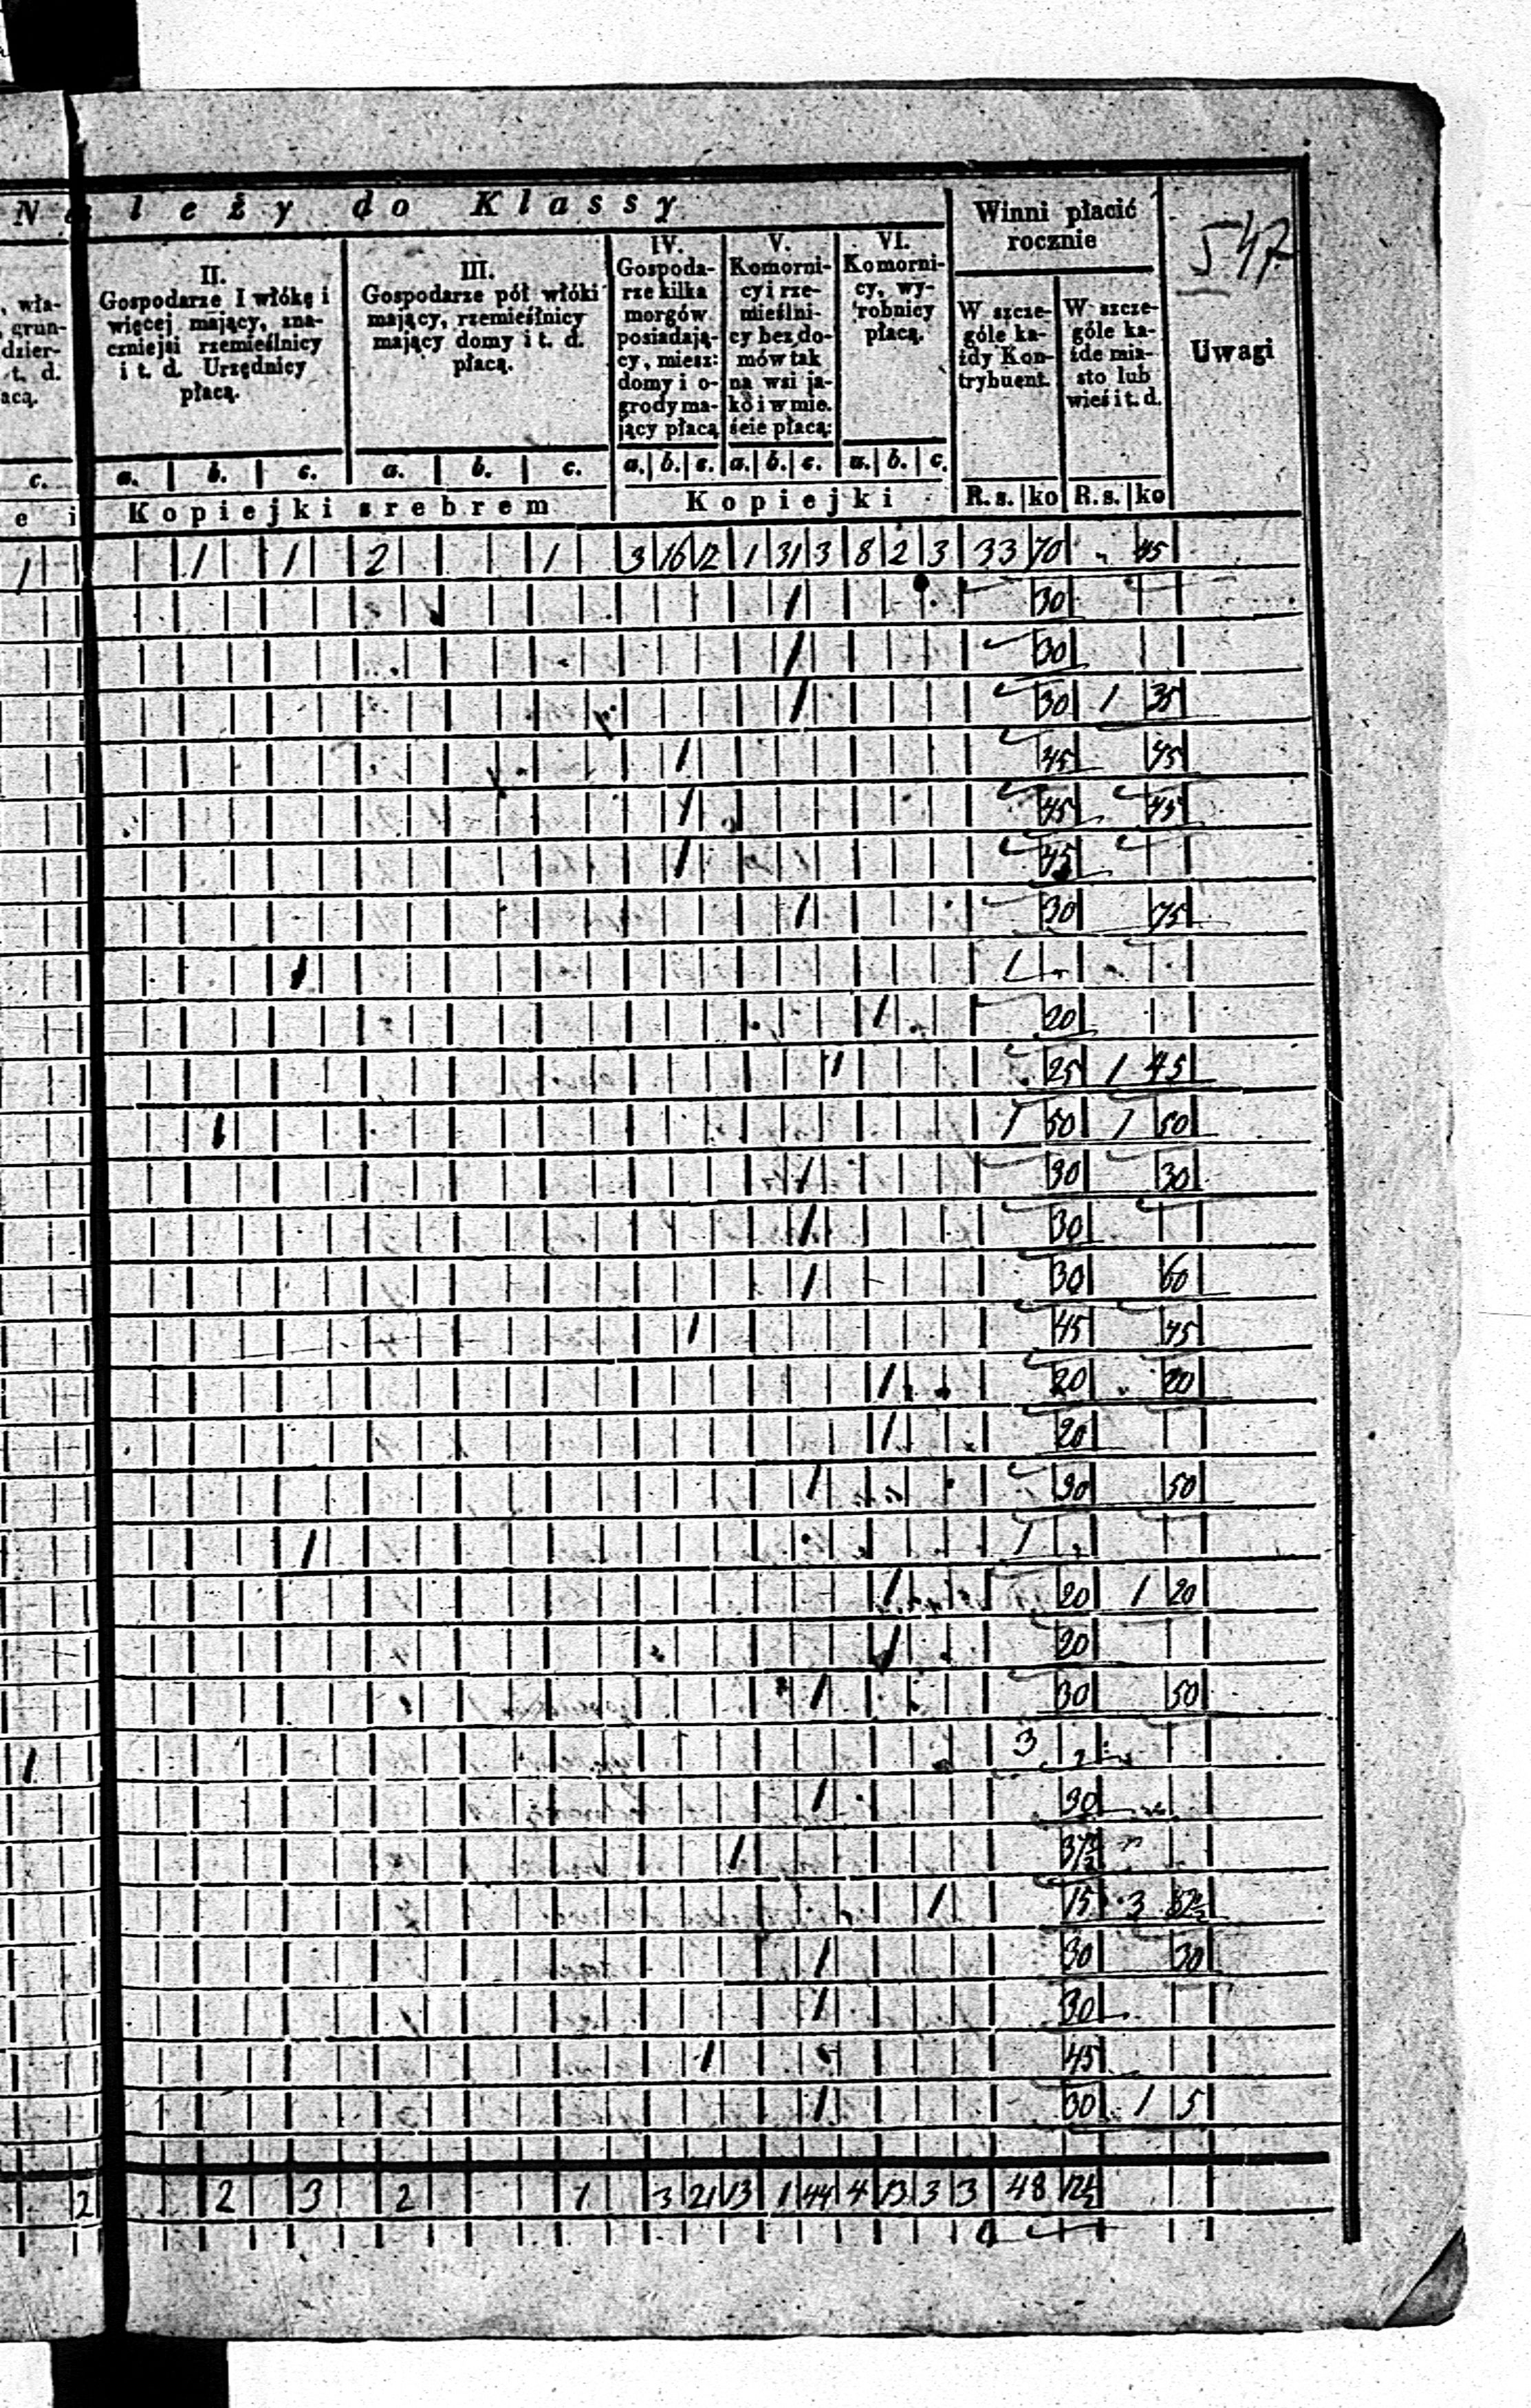 Należy do Klassy
Winni płacić
rocznie
547
Uwagi
, wła-
grun-
dzier-
t. d.
acą.
c.
e i
II.
Gospodarze I włókę i
więcej mający, zna-
czniejsi rzemieślnicy
i t. d. Urzędnicy
płacą.
a. b. c.
III.
Gospodarze pół włóki
mający, rzemieślnicy
mający domy i t. d.
płacą.
a. b. c.
Kopiejki srebrem
IV.
Gospoda-
rze kilka
morgów
posiadają-
cy, miesz:
domy i o-
grody ma-
jący płacą
a. b. c.
V.
Komorni-
cy i rze-
mieślni-
cy bez do-
mów tak
na wsi ja-
ko i w mie.
ście płacą:
a. b. c.
VI.
Komorni-
cy, wy-
robnicy
płacą.
a. b. c.
Kopiejki
W szcze-
góle ka-
żdy Kon-
trybuent.
R. s. ko
W szcze-
góle ka-
żde mia-
sto lub
wieś i t. d.
R. s. ko
1 1 1 2 1 3 16 12 1 31 3 8 2 3 33 70 " 45
1 30
1 30
1 30 1 35
1 45 45
1 45 45
1 45
1 30 75
1 1 "
1 20
1 25 1 45
1 1 50 1 50
1 30 30
1 30
1 30 60
1 45 45
1 20 20
1 20
1 30 50
1 1 "
1 20 1 20
1 20
1 30 50
1 3 "
1 30
1 37½
1 15 3 82½
1 30 30
1 30
1 45
1 30 1 5
2 2 3 2 1 3 21 13 1 44 4 13 3 3 48 12½